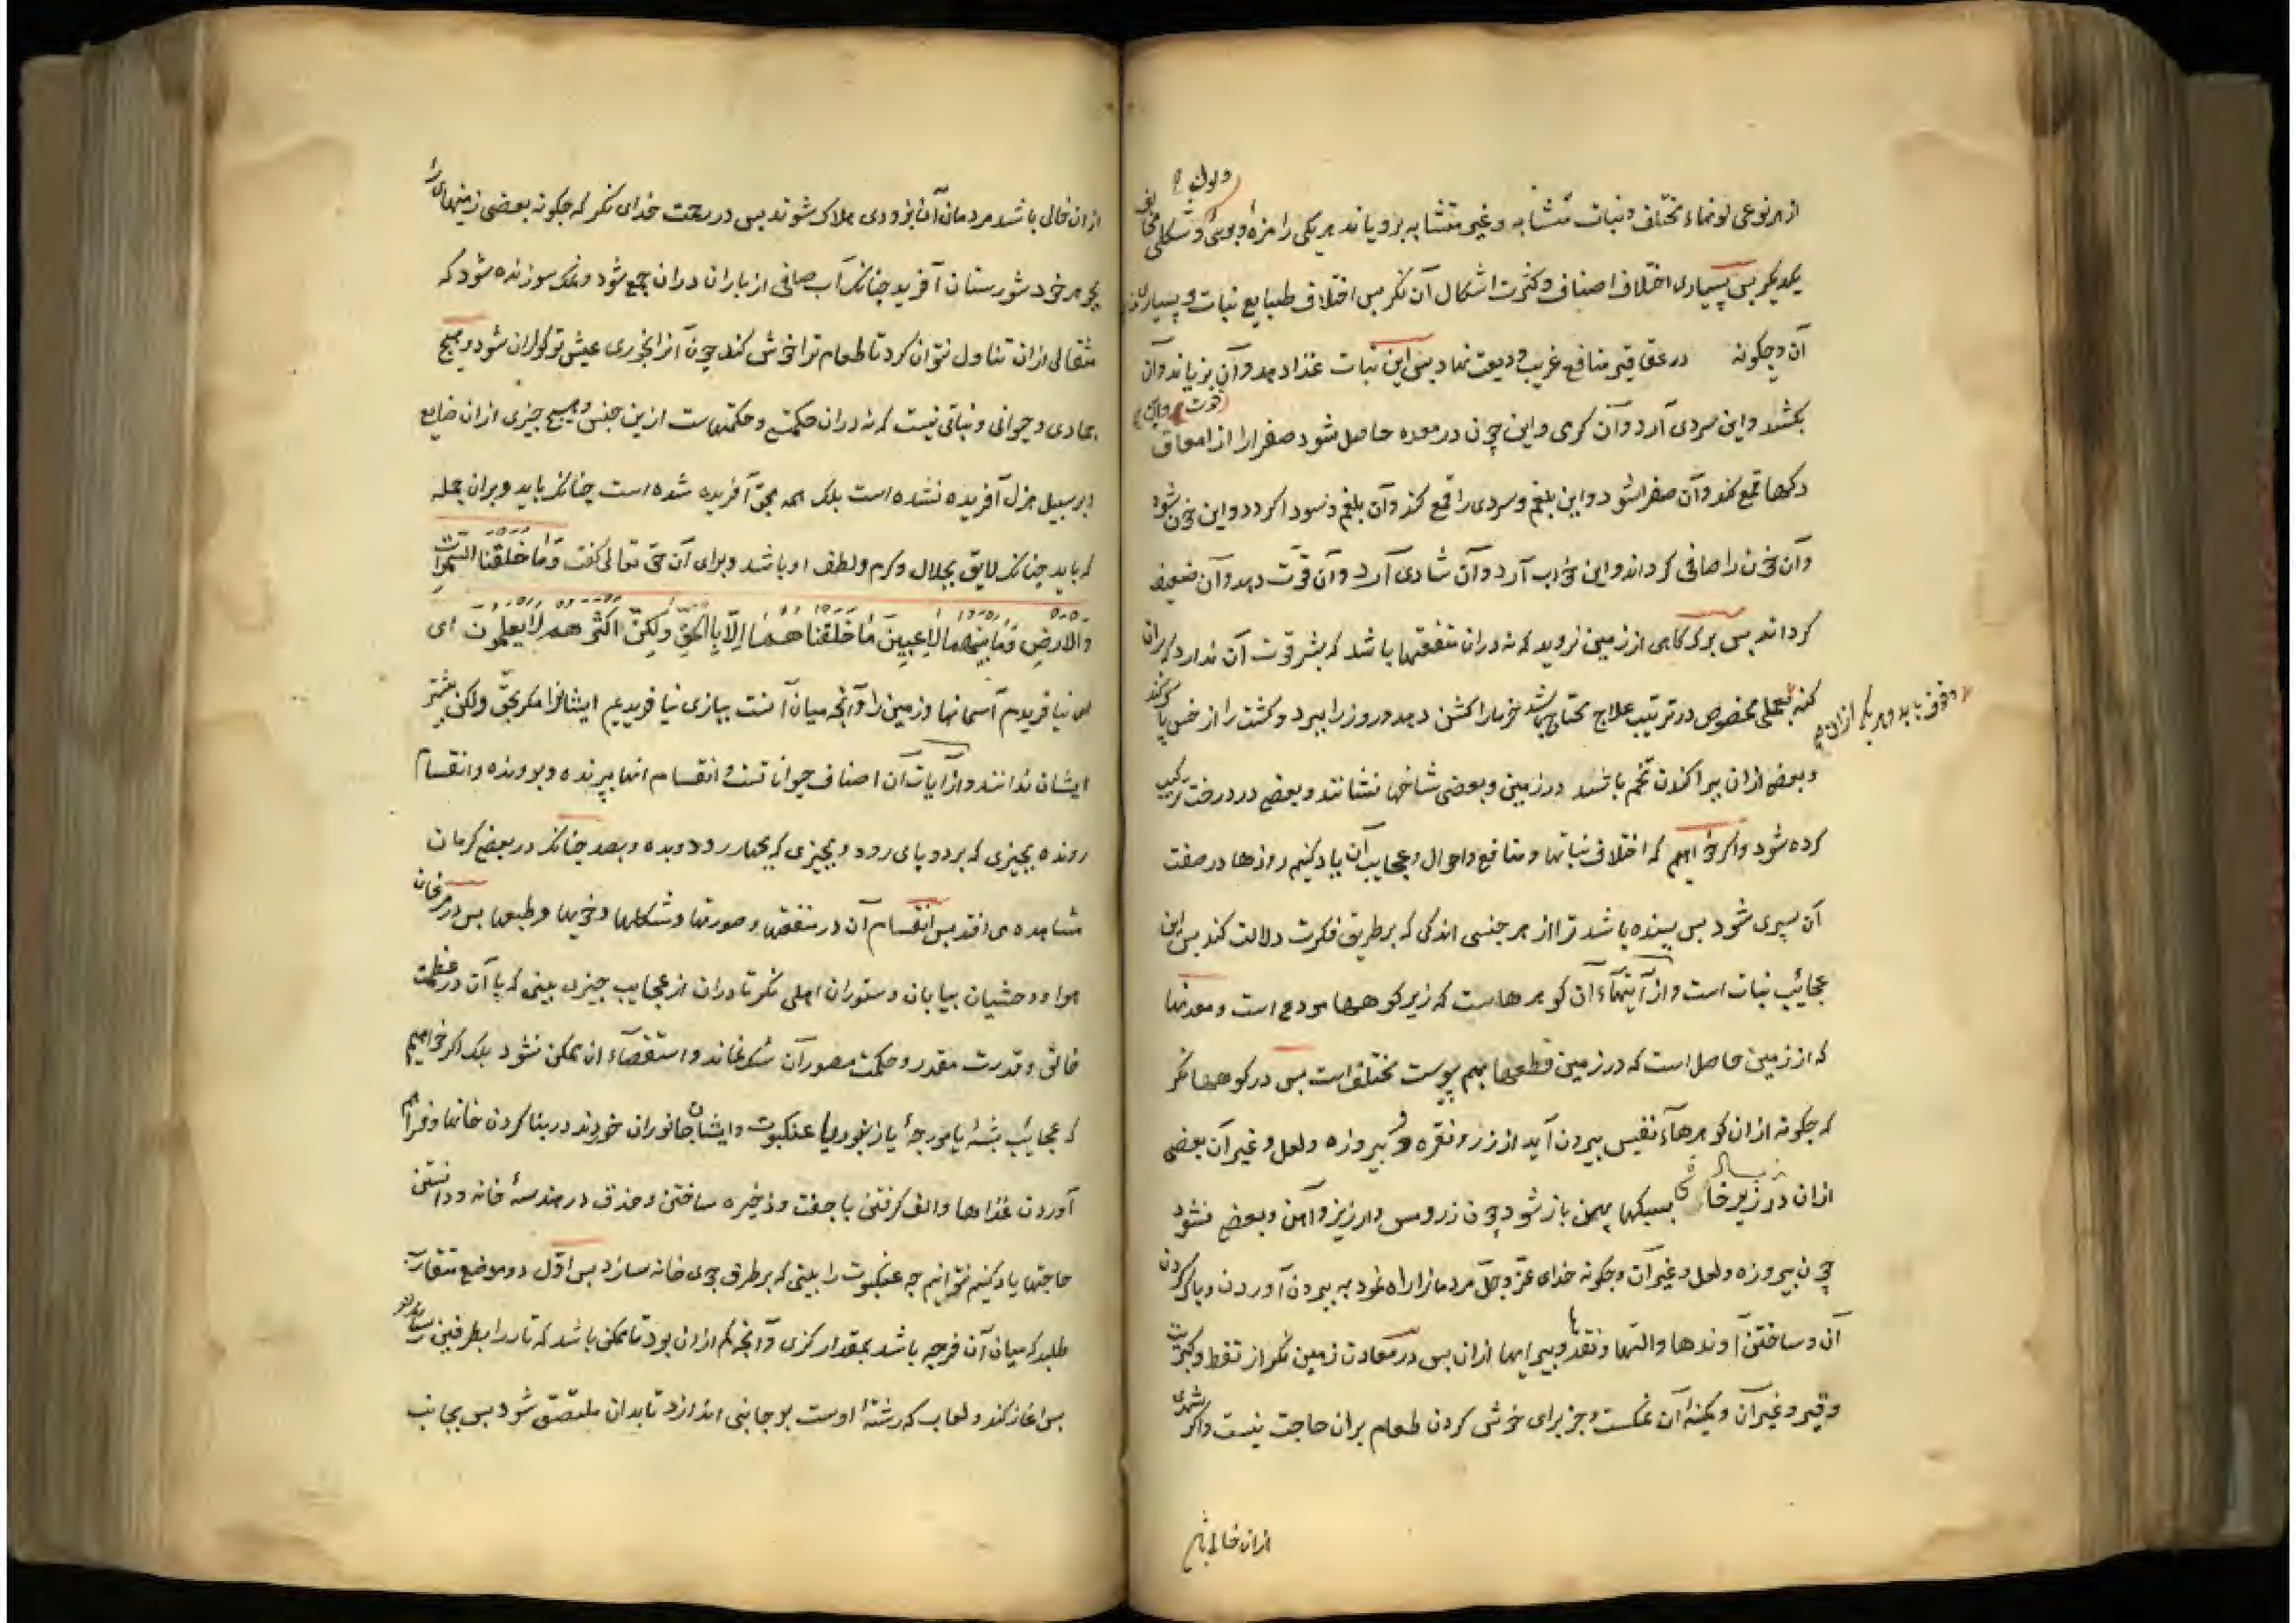 از هر نوعی لونهاء مختلف و نبات متشابه و غیر متشابه برویاند هر یکی را مزهٔ و بوئی و شکلی مخالف
یکدیگر بس بسیاری اختلاف اصناف و کثرت اشکال آن نکر بس اختلاف طبایع نبات و بسیاری
آن و چکونه در عقاقیر منافع غریب ودیعت نهاد بس این نبات غذا دهد و آن بزیاند و آن
بکشد و این سردی آرد و آن کرمی و این چون در معده حاصل شود صفرا را از اعماق
رکها قمع کند و آن صفرا شود و این بلغم و سردی را قمع کند و آن بلغم و سودا کردد و این خون شود
و آن خون را صافی کرداند و این خواب آرد و آن شادی آرد و آن قوّت دهد و آن ضعیف
کرداند بس برک کاهی از زمین نروید که نه دران منفعتها باشد که بشر قوت آن ندارد که بران
وقوف یابد و هر یکی ازان
کنه بعملی مخصوص در ترتیب علاج محتاج باشد خرما را کشن دهد و رز را ببرد و کشت را از خس پاک کند
و بعضی ازان ببراکندن تخم باشد در زمین و بعضی شاخها نشانند و بعضی در درخت ترکیب
کرده شود و اکر خواهیم که اختلاف نباتها و منافع و احوال و عجایب آن یاد کنیم روزها در صفت
آن سپری شود بس بسنده باشد ترا از هر جنسی اندکی که بر طریق فکرت دلالت کند بس این
عجائب نبات است و از آیتهاء آن کوهرهاست که زیر کوهها مودع است و معدنها
که از زمین حاصل است که در زمین قطعها بهم پیوست مختلف است بس در کوهها نکر
که چکونه ازان کوهرهاء نفیس بیرون آید از زر و نقره و پیروزه و لعل و غیر آن بعضی
ازان در زیر بسبکها پهن باز شود چون زر و مس و ارزیز و آهن و بعضی نشود
چون پیروزه و لعل و غیر آن و چکونه خدای عزّ و جلّ مردمانرا راه نمود به بیرون آوردن و پاک کردن
آن و ساختن آوندها و التها و نقدها و پیرایها ازان بس در معادن زمین نکر از نفط و کبریت
و قیر و غیر آن و کمینهٔ آن نمکست و جز برای خوش کردن طعام بران حاجت نیست و اکر شهری
ازان خالی باشد
ازان خالی باشد مردمان آن بزودی هلاک شوند بس در رحمت خدای نکر که چکونه بعضی زمینها را
بجوهر خود شورستان آفرید چنانک آب صافی از باران دران جمع شود و نمک سوزنده شود که
مثقالی ازان تناول نتوان کرد تا طعام ترا خوش کند چون آنرا بخوری عیش تو کوارا شود و هیچ
جمادی و حیوانی و نباتی نیست که نه دران حکمتی و حکمتهاست ازین جنس و هیچ چیزی ازان ضایع
و بر سبیل هزل آفریده نشده است بلک همه بحقّ آفریده شده است چنانک باید و بران جمله
که باید چنانک لایق بجلال و کرم و لطف او باشد و برای آن حق تعالی کفت وَمَا خَلَقْنَا السَّمَوَاتِ
وَالْاَرْضَ وَمَا بَيْنَهُمَا لَاعِبِينَ مَا خَلَقْنَاهُمَا اِلَّا بِالْحَقِّ وَلٰكِنَّ اَكْثَرَهُمْ لَا يَعْلَمُونَ ای
نیافریدیم آسمانها و زمین را و آنچه میان آنست ببازی نیافریدیم ایشانرا مکر بحقّ ولکن بیشتر
ایشان ندانند و از آیات آن اصناف حیوانانست و انقسام انها بپرنده و بدونده و انقسام
رونده بچیزی که بر دو پای رود و بچیزی که بچهار رود و بده و بصد چنانک در بعضی کرمان
مشاهده می افتد بس انقسام آن در منفعتها و صورتها و شکلها و خویها و طبعها بس در مرغان
هوا و وحشیان بیابان و ستوران اهلی نکر تا دران از عجایب چیزی بینی که با آن در عظمت
خالق و قدرت مقدر و حکمت مصور آن شک نماند و استقصاء ان ممکن نشود بلک اکر خواهیم
که عجائب پشهٔ یا مورچهٔ یا زنبوری یا عنکبوت و ایشان جانوران خردند در بنا کردن خانها و فراهم
آوردن غذاها و الف کرفتن با جفت و ذخیره ساختن و حذق در هندسهٔ خانه و دانستن
حاجتها یاد کنیم نتوانیم چه عنکبوت را بینی که بر طرف جوی خانه سازد بس اوّل دو موضع متقارب
طلبد که میان آن فرجه باشد بمقدار کزی و آنچه کم ازان بود تا ممکن باشد که تار را بطرفین رساند
بس اغاز کند و لعاب که رشتهٔ اوست بر جانبی اندازد تا بدان ملتصق شود بس بجانب